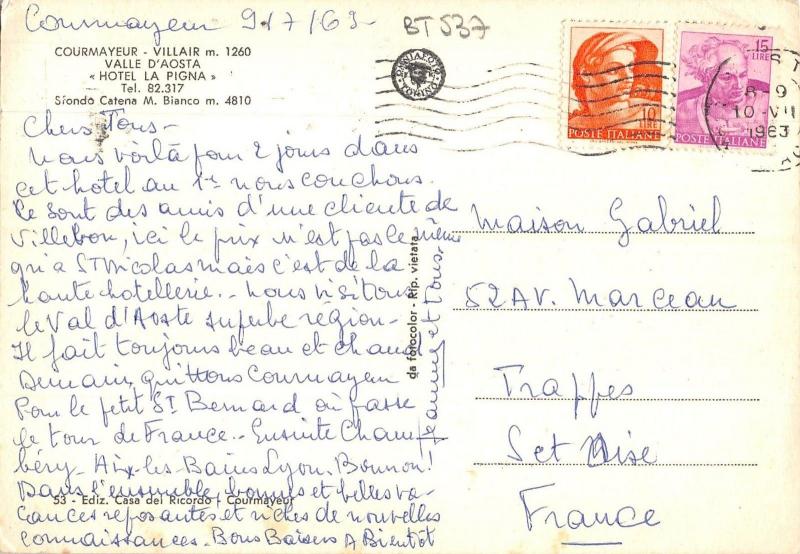 Courmayeur 9/7/63-
BT 537
COURMAYEUR - VILLAIR m. 1260
VALLE D'AOSTA
« HOTEL LA PIGNA »
Tel. 82.317
Sfondo Catena M. Bianco m. 4810
10 LIRE
POSTE ITALIANE
15 LIRE
POSTE ITALIANE
8-9
10 VII
1963
Chers Tous-
nous voilà pour 2 jours dans
cet hotel au 1er nous couchons.
Ce sont des amis d'une cliente de
Villebon, ici le prix n'est pas le même
qu'a St Nicolas mais c'est de la
haute hotellerie.- nous visitons
le Val d'Aoste superbe region-
Il fait toujours beau et chaud
Demain, quittons Courmayeur
Pour le petit St Bernard où passe
le tour de France.- Ensuite Cham
béry- Aix-les Bains Lyon.
Dans l'ensemble bonnes et belles va-
cances reposantes et riches de nouvelles
connaissances. Bons Baisers A Bientôt
et Tous,
da fotocolor - Rip. vietata
53 - Ediz. Casa del Ricordo - Courmayeur
Maison Gabriel
52 AV. Marceau
Trappes
Set Oise
France